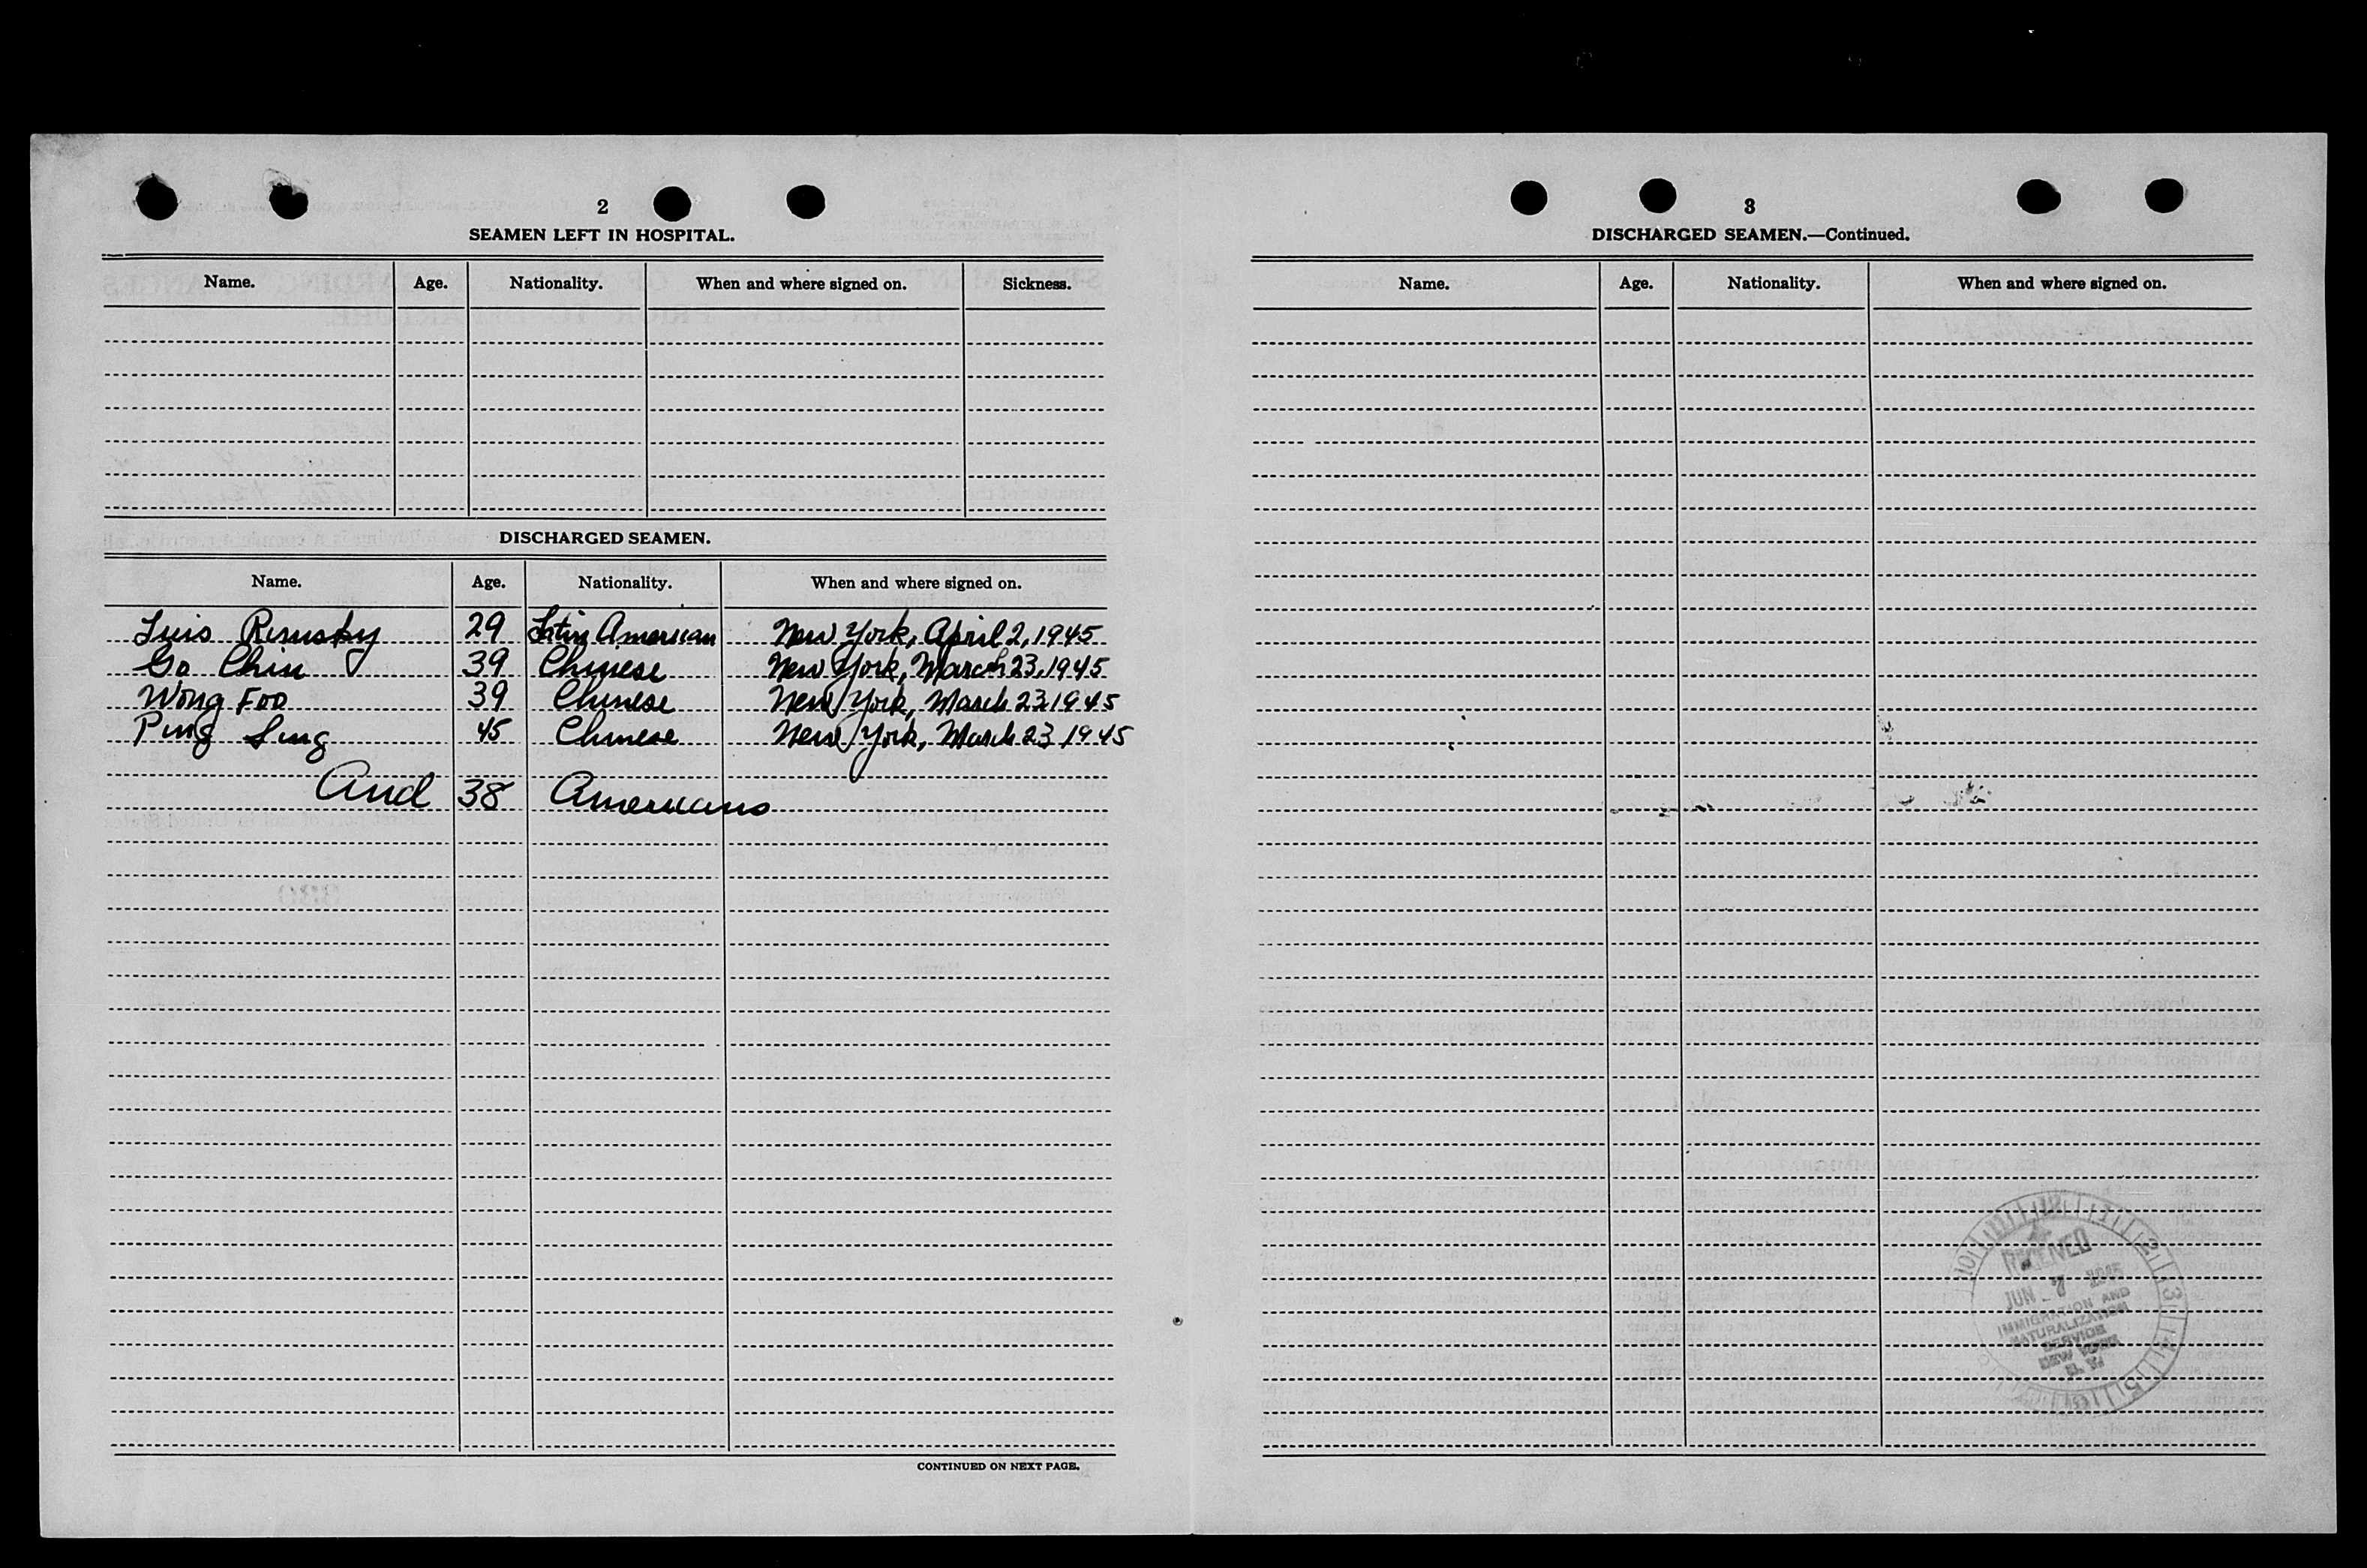 2
SEAMEN LEFT IN HOSPITAL.
Name. Age. Nationality. When and where signed on. Sickness.
DISCHARGED SEAMEN.
Name. Age. Nationality. When and where signed on.
Luis 29 Latin American New York, April 2, 1945
Go Chin 39 Chinese New York, March 23, 1945
Wong Foo 39 Chinese New York, March 23 1945
Ping Sing 45 Chinese New York, March 23 1945
And 38 Americans
CONTINUED ON NEXT PAGE.
3
DISCHARGED SEAMEN.—Continued.
Name. Age. Nationality. When and where signed on.
RECEIVED
JUN 1945
IMMIGRATION AND
NATURALIZATION
SERVICE
NEW YORK
N. Y.